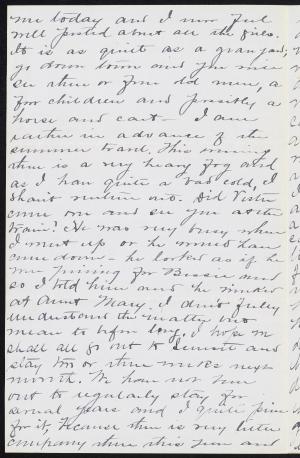 me today and I now feel
well posted about all the fires.
It is as quiet as a graveyard,
go down town and you will
see three or four old men, a
few children and possibly a
horse and cart - I am
rather in advance of the
summer travel. This evening
there is a very heavy fog and
as I have quite a bad cold, I
shan't venture out. Did Victor
come over and see you at the
train? He was very busy when
I went up or he would have
come down - he looked as if he
was pining for Bessie and
so I told him and he
at Aunt Mary. I don't fully
understand the matter but
mean to before long. I hope we
shall all go out to Summit and
stay two or three weeks next
month. We have not been
out to regularly stay for
several years and I quite pine
for it, because there is very little
company there this year and